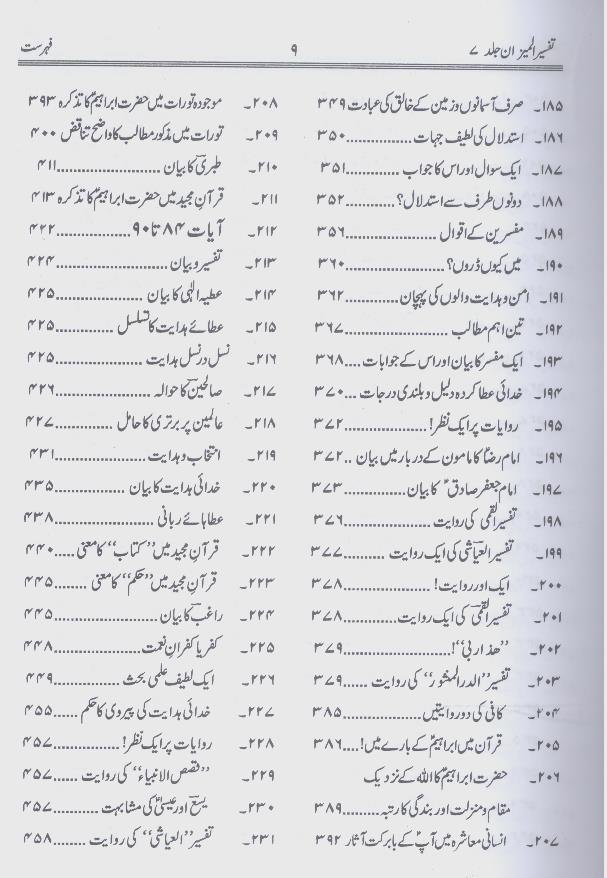 تفسیر المیزان جلد ۷
۹
فہرست
۱۸۵۔ صرف آسمانوں و زمین کے خالق کی عبادت ۳۴۹
۱۸۶۔ استدلال کی لطیف جہات ................ ۳۵۰
۱۸۷۔ ایک سوال اور اس کا جواب ............. ۳۵۱
۱۸۸۔ دونوں طرف سے استدلال؟ ............. ۳۵۲
۱۸۹۔ مفسرین کے اقوال ................... ۳۵۶
۱۹۰۔ میں کیوں ڈروں؟ .................... ۳۶۰
۱۹۱۔ امن و ہدایت والوں کی پہچان ........... ۳۶۲
۱۹۲۔ تین اہم مطالب ..................... ۳۶۷
۱۹۳۔ ایک مفسر کا بیان اور اس کے جوابات .... ۳۶۸
۱۹۴۔ خدائی عطا کردہ دلیل و بلندی درجات .... ۳۷۰
۱۹۵۔ روایات پر ایک نظر! ................. ۳۷۲
۱۹۶۔ امام رضاؑ کا مامون کے دربار میں بیان .. ۳۷۲
۱۹۷۔ امام جعفر صادقؑ کا بیان ............. ۳۷۳
۱۹۸۔ تفسیر القمی کی روایت ................ ۳۷۶
۱۹۹۔ تفسیر العیاشی کی ایک روایت .......... ۳۷۷
۲۰۰۔ ایک اور روایت! .................... ۳۷۸
۲۰۱۔ تفسیر القمی کی ایک روایت ............ ۳۷۸
۲۰۲۔ ”ھذا ربی“! ....................... ۳۷۹
۲۰۳۔ تفسیر ”الدر المنثور“ کی روایت ....... ۳۷۹
۲۰۴۔ کافی کی دو روایتیں .................. ۳۸۵
۲۰۵۔ قرآن میں ابراہیمؑ کے بارے میں! .... ۳۸۶
۲۰۶۔ حضرت ابراہیمؑ کا اللہ کے نزدیک
مقام و منزلت اور بندگی کا رتبہ .......... ۳۸۹
۲۰۷۔ انسانی معاشرہ میں آپؑ کے بابرکت آثار ۳۹۲
۲۰۸۔ موجودہ تورات میں حضرت ابراہیمؑ کا تذکرہ ۳۹۳
۲۰۹۔ تورات میں مذکور مطالب کا واضح تناقض ۴۰۰
۲۱۰۔ طبری کا بیان ....................... ۴۱۱
۲۱۱۔ قرآن مجید میں حضرت ابراہیمؑ کا تذکرہ ۴۱۳
۲۱۲۔ آیات ۸۴ تا ۹۰ .................... ۴۲۲
۲۱۳۔ تفسیر و بیان ........................ ۴۲۴
۲۱۴۔ عطیہ الٰہی کا بیان ................... ۴۲۵
۲۱۵۔ عطائے ہدایت کا تسلسل .............. ۴۲۵
۲۱۶۔ نسل در نسل ہدایت .................. ۴۲۵
۲۱۷۔ صالحین کا حوالہ ..................... ۴۲۶
۲۱۸۔ عالمین پر برتری کا حامل .............. ۴۲۷
۲۱۹۔ انتخاب و ہدایت .................... ۴۳۱
۲۲۰۔ خدائی ہدایت کا بیان ................. ۴۳۵
۲۲۱۔ عطاہائے ربانی ..................... ۴۳۸
۲۲۲۔ قرآن مجید میں ”کتاب“ کا معنی ..... ۴۴۰
۲۲۳۔ قرآن مجید میں ”حکم“ کا معنی ........ ۴۴۵
۲۲۴۔ راغب کا بیان ...................... ۴۴۵
۲۲۵۔ کفر یا کفرانِ نعمت .................. ۴۴۸
۲۲۶۔ ایک لطیف علمی بحث ................. ۴۴۹
۲۲۷۔ خدائی ہدایت کی پیروی کا حکم ...... ۴۵۵
۲۲۸۔ روایات پر ایک نظر! ................ ۴۵۷
۲۲۹۔ ”قصص الانبیاء“ کی روایت .......... ۴۵۷
۲۳۰۔ یسعؑ اور عیسیٰؑ کی مشابہت .......... ۴۵۷
۲۳۱۔ تفسیر ”العیاشی“ کی روایت ........ ۴۵۸